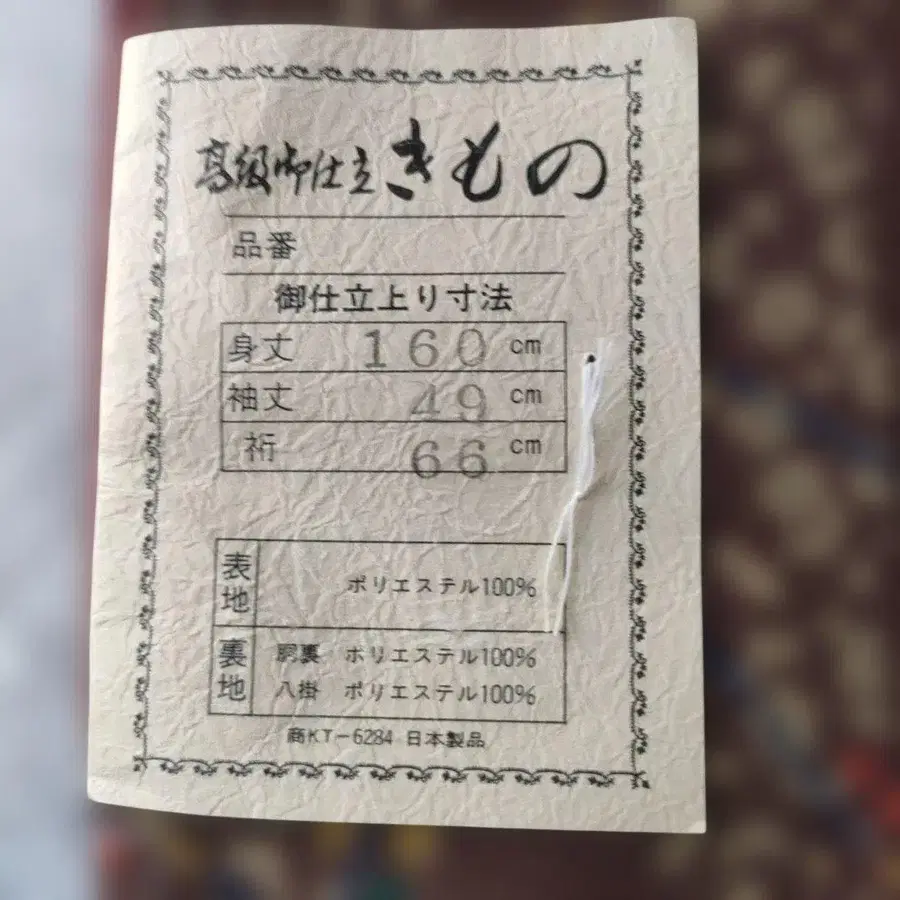 高級御仕立きもの
品番
御仕立上り寸法
身丈 160 cm
袖丈 49 cm
裄 66 cm
表地 ポリエステル100%
裏地 胴裏 ポリエステル100%
八掛 ポリエステル100%
商KT-6284 日本製品